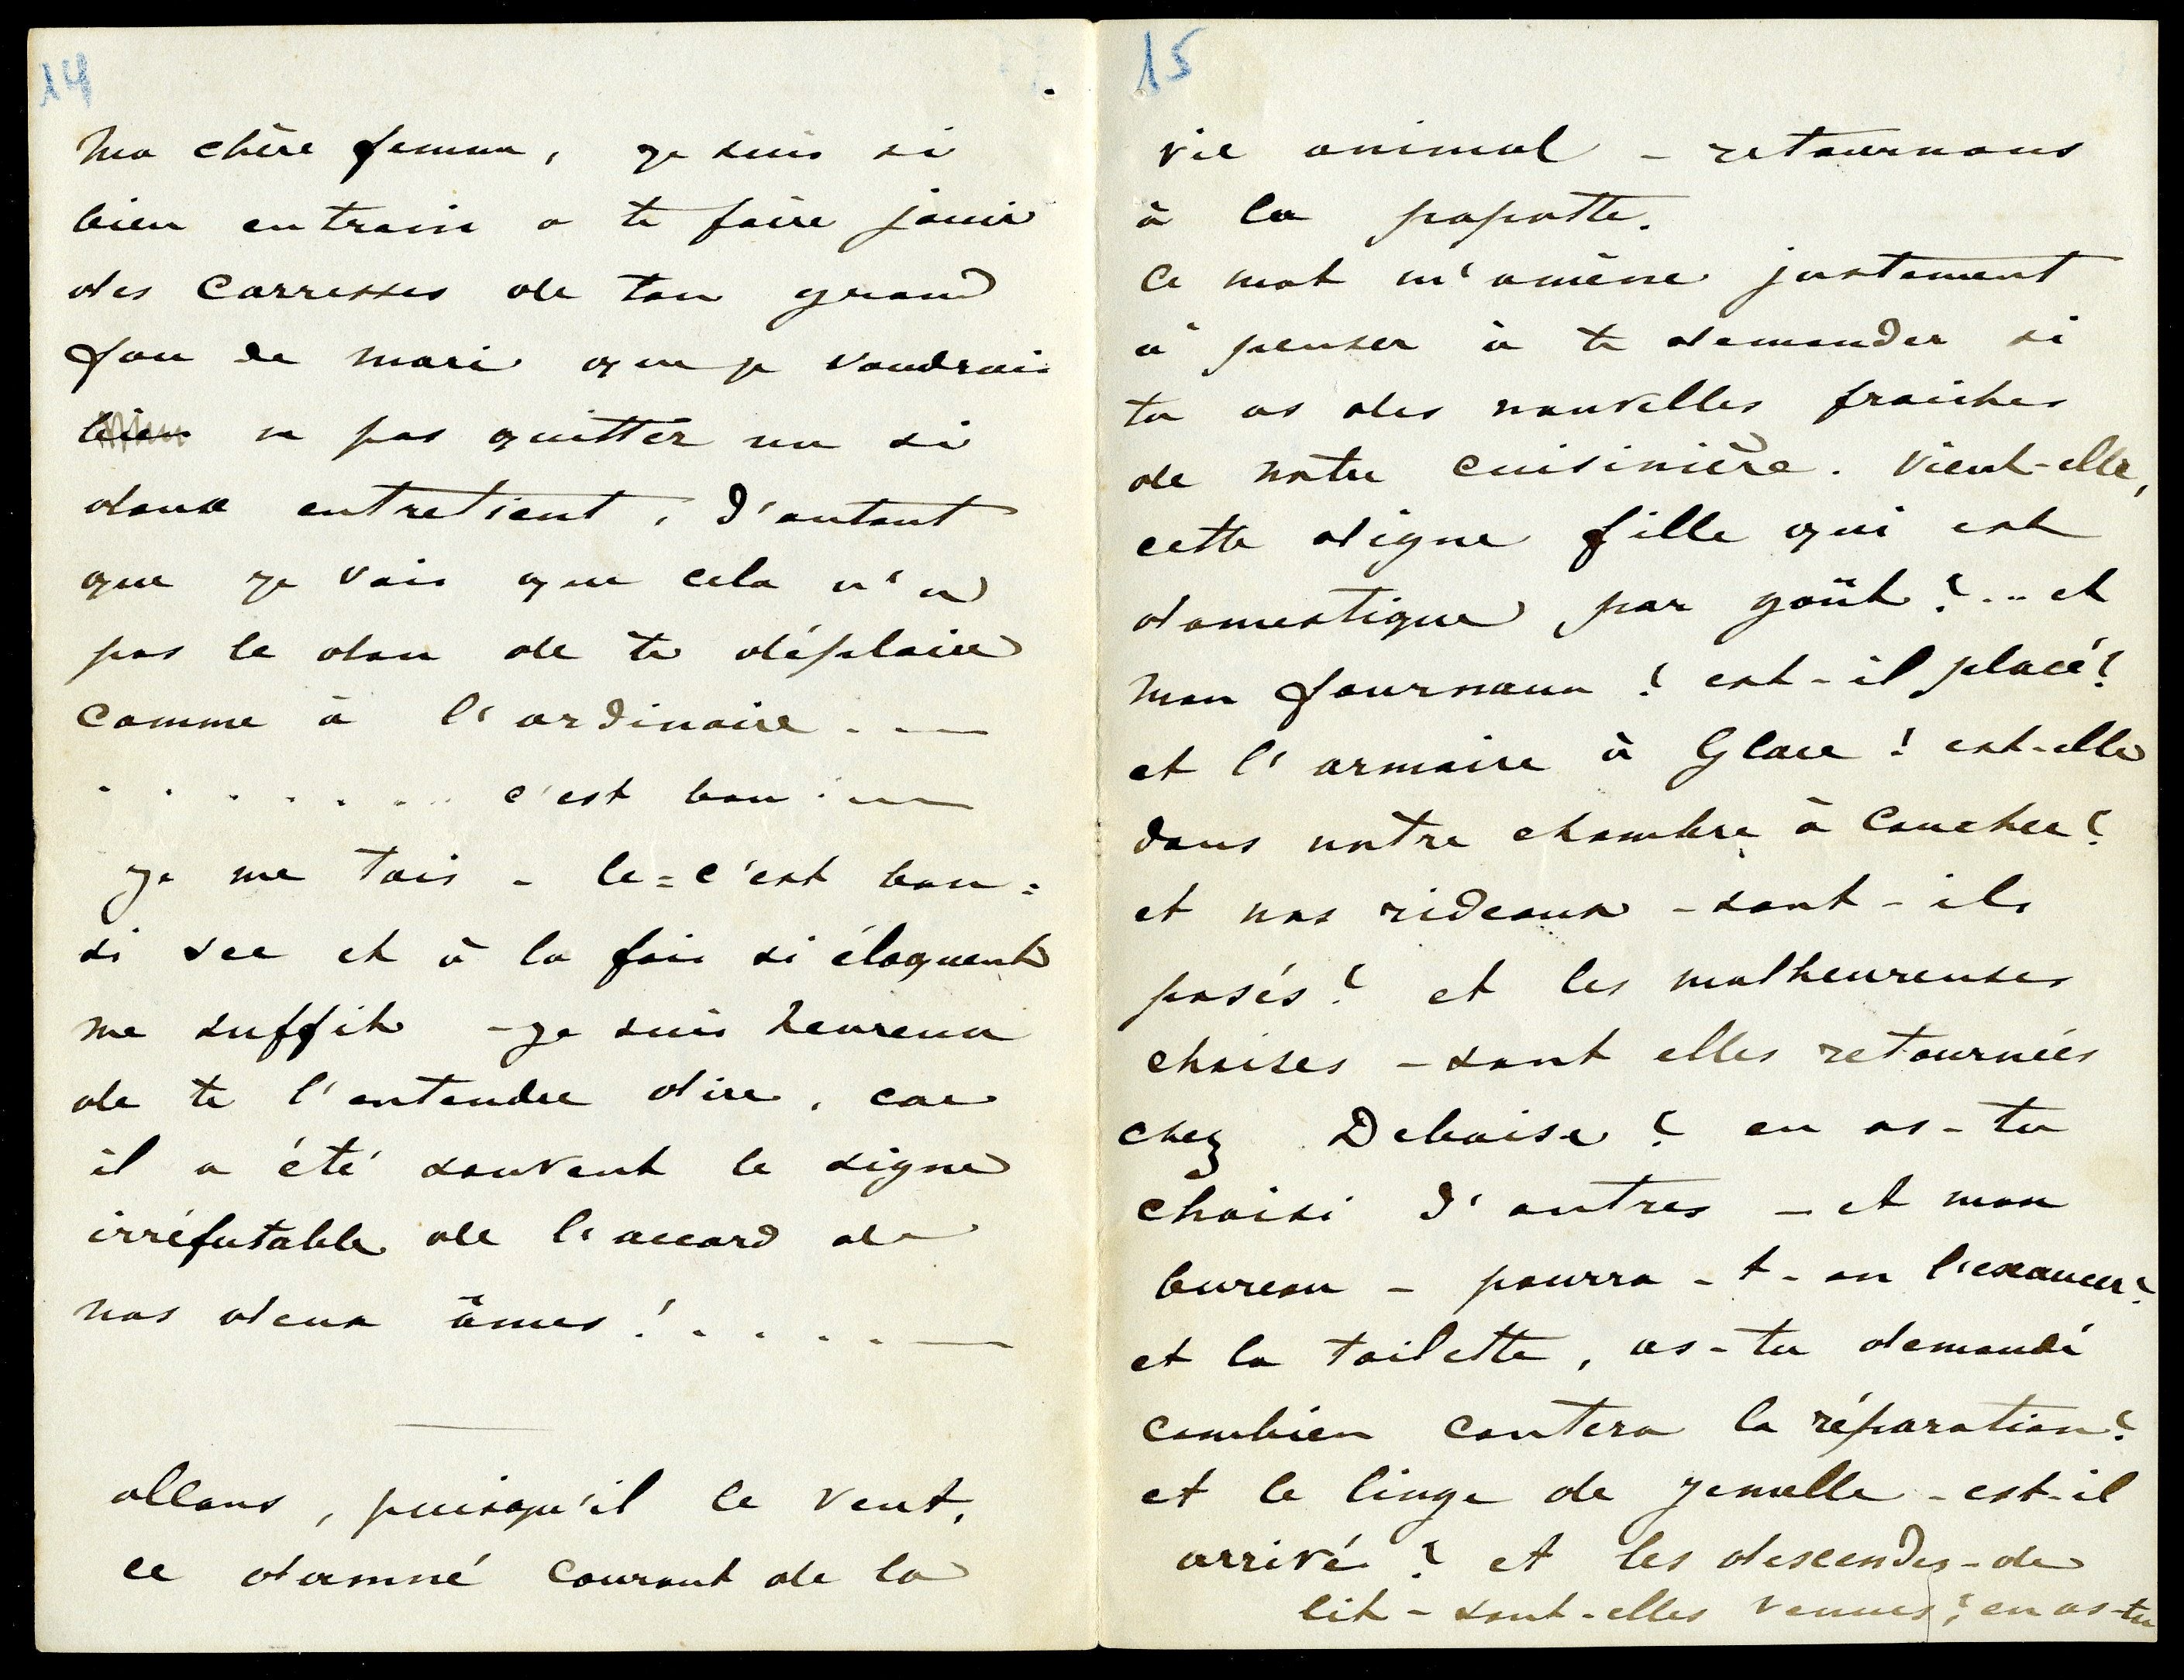 14
Ma chère femme, je suis si
bien entrain a te faire jouir
des Carresses de ton grand
fou de mari que je voudrais
bien ne pas quitter un si
doux entretient, d'autant
que je vois que cela n'a
pas le don de te déplaire
comme à l'ordinaire . . —
. . . . . . . . c'est bon . —
Je me tais - le = c'est bon =
si sec et à la fois si éloquent
me suffit - je suis heureux
de te l'entendre dire, car
il a été souvent le signe
irréfutable de l'accord de
nos deux âmes ! . . . . —
allons, puisqu'il le veut,
ce damné courant de la
15
vie animal - retournons
à la popotte.
Ce mot m'amène justement
à penser à te demander si
tu as des nouvelles fraiches
de notre cuisinière. Vient-elle,
cette digne fille qui est
domestique par goût ? ... et
mon fourneau ! est-il placé ?
et l'armoire à Glace ! est-elle
dans notre chambre à coucher ?
et nos rideaux - sont-ils
posés ? et les malheureuses
chaises - sont elles retournées
chez Deboise ? en as-tu
choisi d'autres - et mon
bureau - pourra-t-on l'exaucer ?
et la toilette, as-tu demandé
combien coutera la réparation ?
et le linge de Jemelle - est-il
arrivé ? et les descendes-de
lit - sont-elles venues ? en as-tu